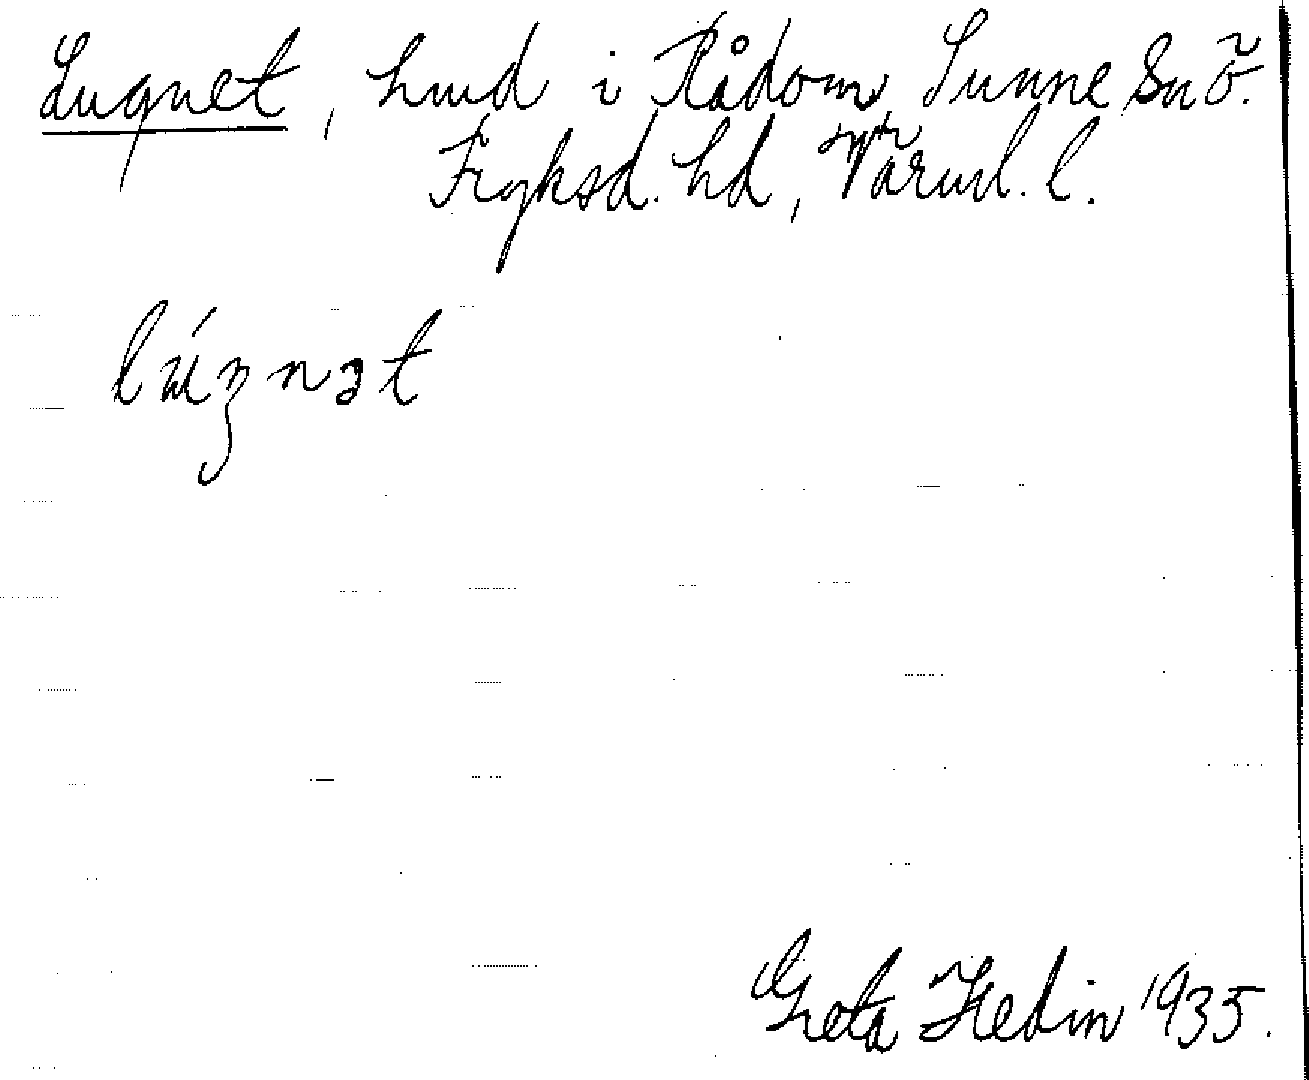 Lugnet, hmd i Rådom, Sunne sn ö.
Fryksd. hd, Värml. l.
lúŋnət
Greta Hedin 1935.